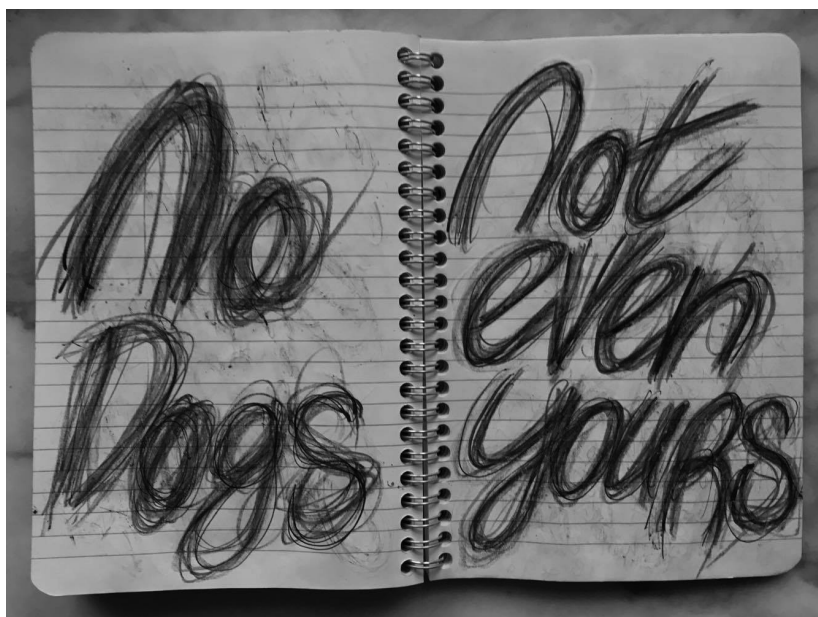 No
Dogs
Not
even
yours